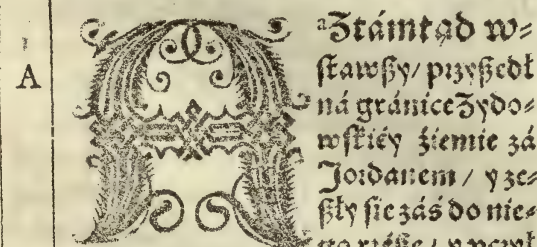 A
A
a Ztámtąd w=
stawßy/ przyßedł
ná gránice Zydo=
wskiéy źiemie zá
Jordanem / y ze=
ßły się záś do nie=
go rzéße / y